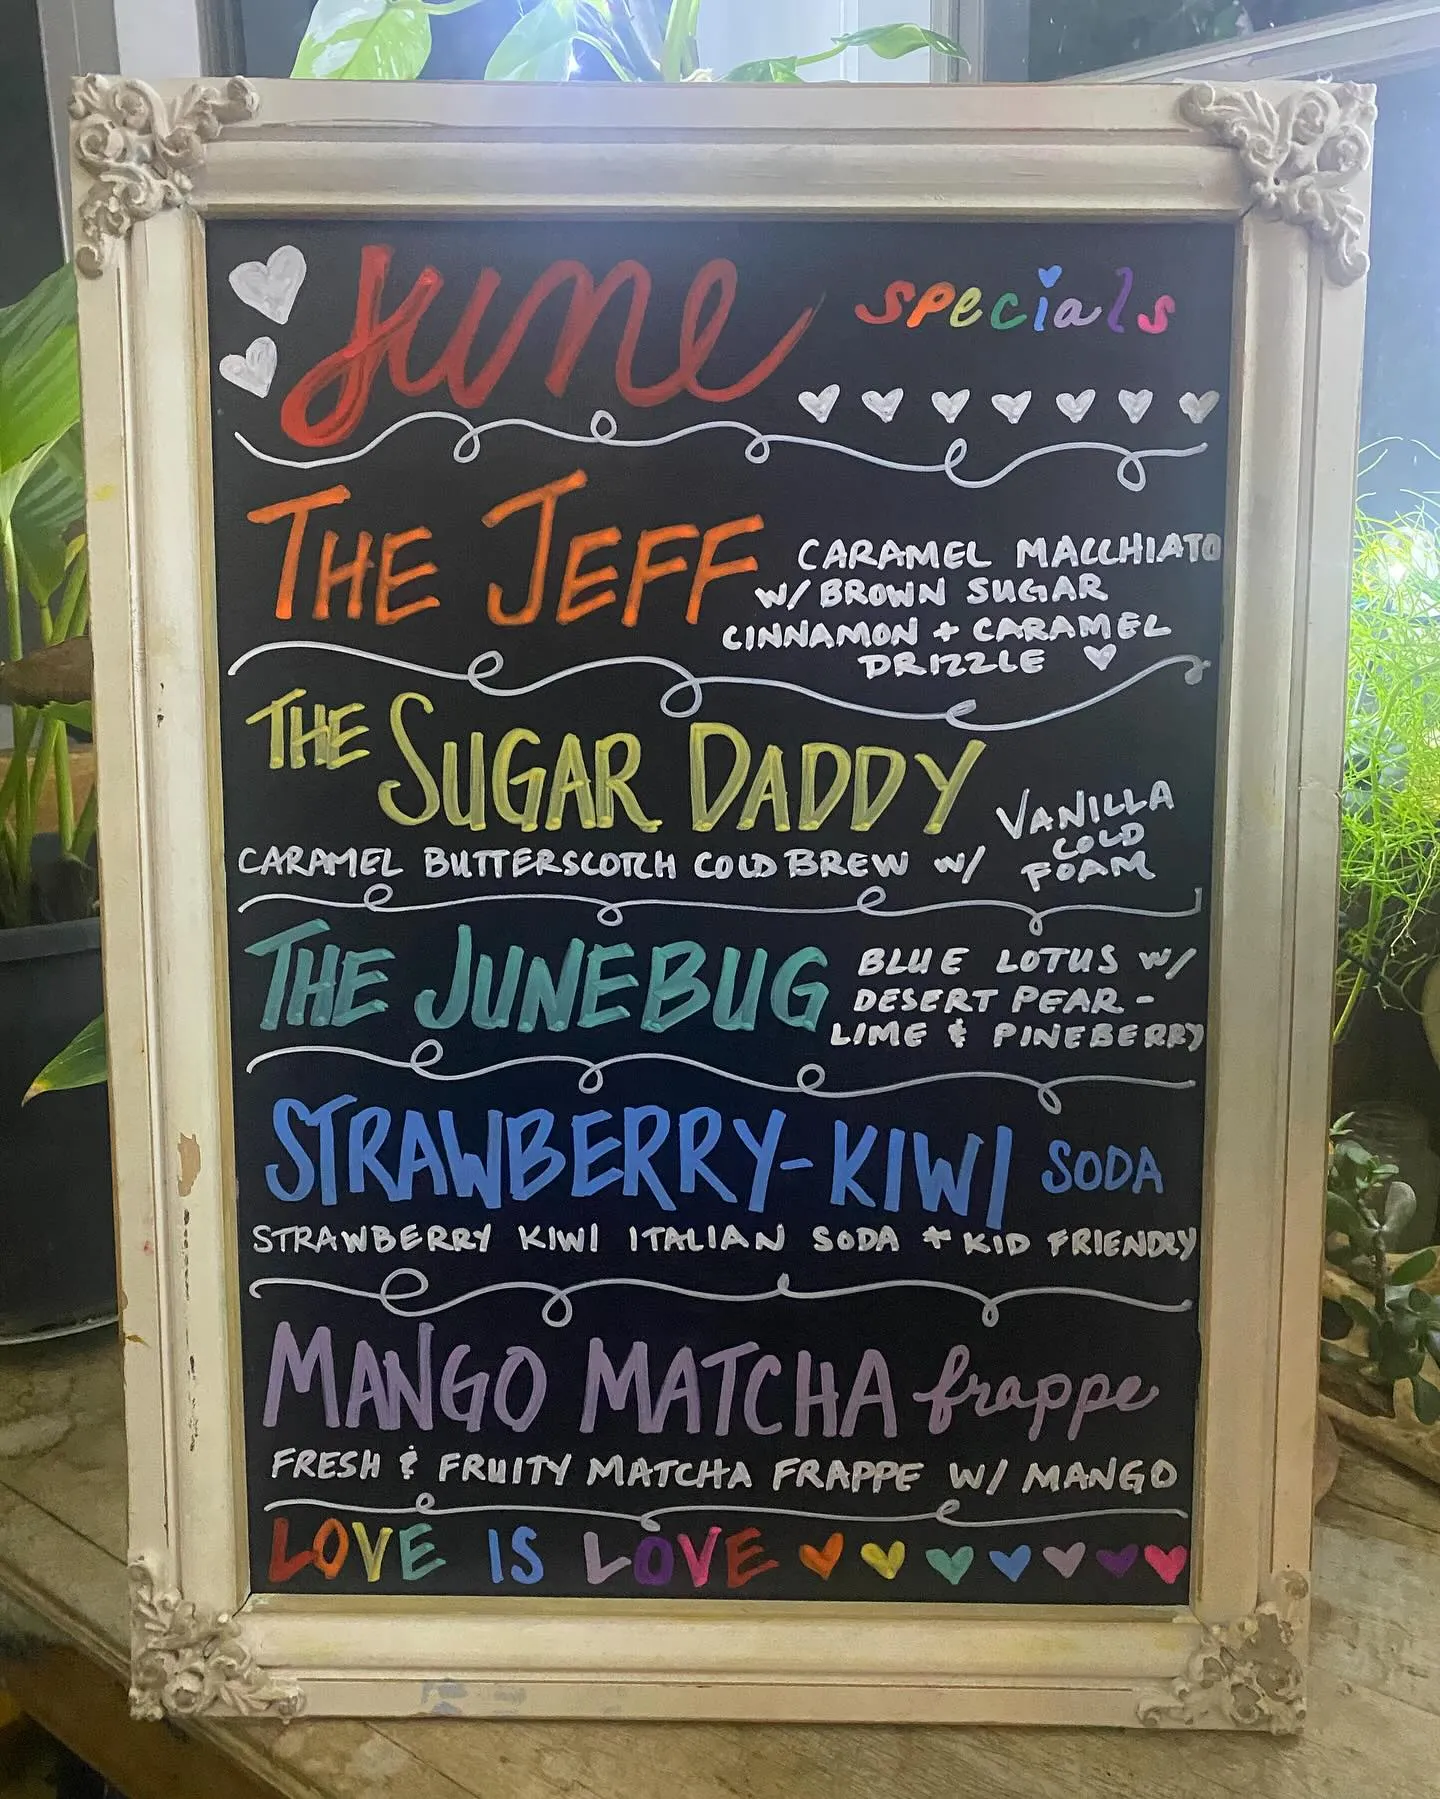 June specials
THE JEFF
CARAMEL MACCHIATO
W/ BROWN SUGAR
CINNAMON + CARAMEL
DRIZZLE
THE SUGAR DADDY
CARAMEL BUTTERSCOTCH COLD BREW W/
VANILLA
COLD
FOAM
THE JUNEBUG
BLUE LOTUS W/
DESERT PEAR-
LIME & PINEBERRY
STRAWBERRY-KIWI SODA
STRAWBERRY KIWI ITALIAN SODA * KID FRIENDLY
MANGO MATCHA frappe
FRESH & FRUITY MATCHA FRAPPE W/ MANGO
LOVE IS LOVE